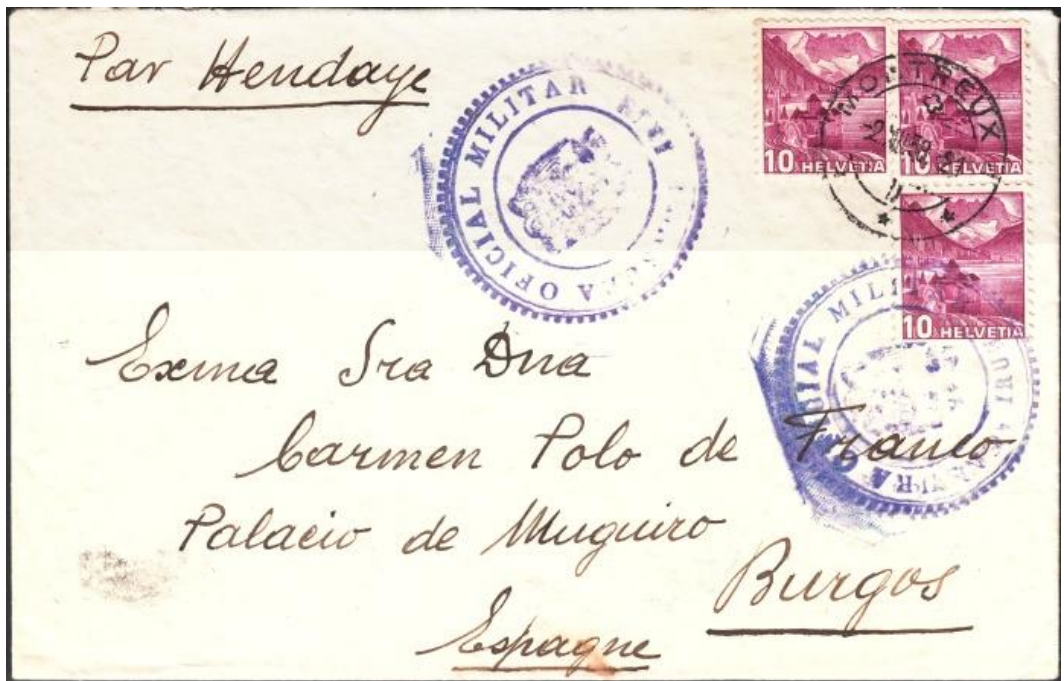 Par Hendaye
OFICIAL MILITAR
10 HELVETIA
10 HELVETIA
MONTREUX
10 HELVETIA
MILIT
Exma Sra Dna
Carmen Polo de Franco
Palacio de Muguiro
Burgos
Espagne